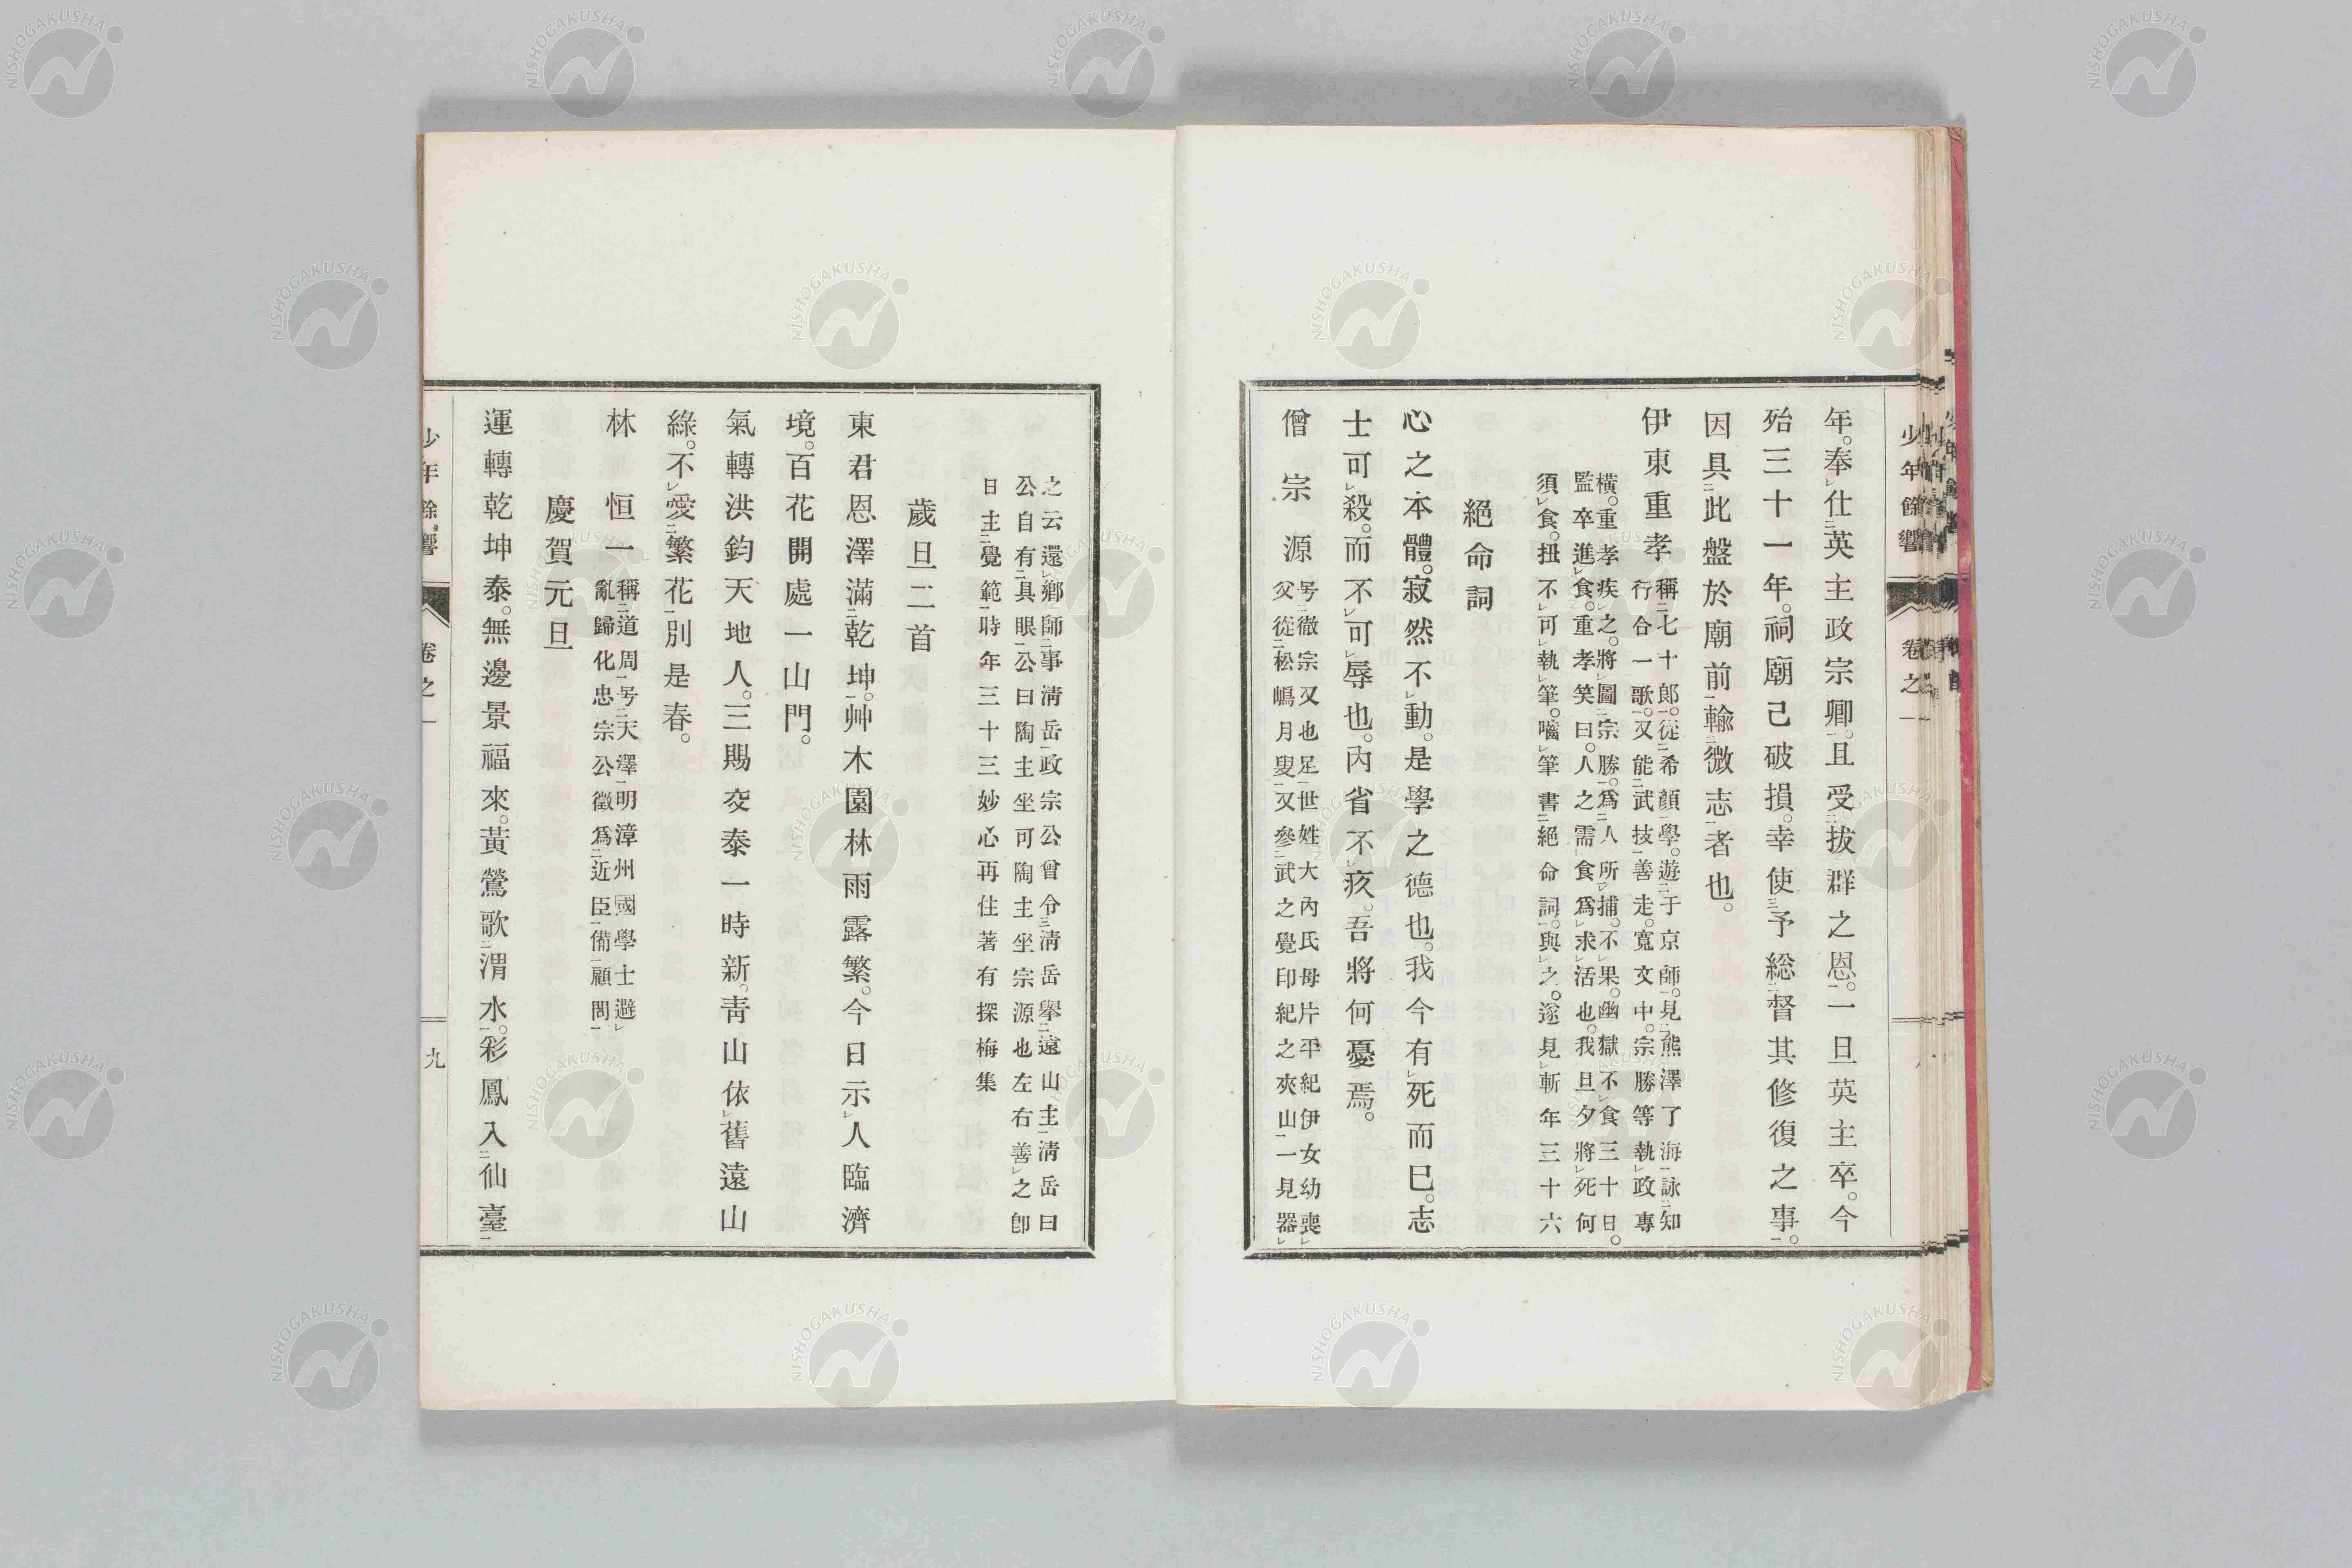 年。奉レ仕二英主政宗卿一。且受二拔群之恩一。一旦英主卒。今
殆三十一年。祠廟已破損。幸使三予総二督其修復之事一。
因具二此盤於廟前一輸二微志一者也。
伊東重孝
稱二七十郎一。從二希顔一學。遊二于京師一。見二熊澤了海一詠二知
行合一歌一。又能二武技一善走。寬文中。宗勝等執レ政專
橫。重孝疾レ之。將レ圖二宗勝一。爲二人所一レ捕。不レ果。幽獄不レ食三十日。
監卒進レ食。重孝笑曰。人之需レ食爲レ求レ活也。我旦夕將レ死何
須レ食。扭不レ可レ執レ筆。嚙レ筆書二絕命詞一。與レ之。遂見レ斬年三十六
絕命詞
心之本體。寂然不レ動。是學之德也。我今有レ死而已。志
士可レ殺。而不レ可レ辱也。內省不レ疚。吾將何憂焉。
僧宗源
号二徹宗又也足一世姓大內氏母片平紀伊女幼喪レ
父從二松嶋月叟一又參二武之覺印紀之夾山一一見器レ
少年餘響
卷之一
八
之云還レ鄉師二事淸岳一政宗公曾令三淸岳擧二遠山主一淸岳曰
公自有二具眼一公曰陶主坐可陶主坐宗源也左右善レ之卽
日主二覺範一時年三十三妙心再住著有探梅集
歲旦二首
東君恩澤滿二乾坤一。艸木園林雨露繁。今日示レ人臨濟
境。百花開處一山門。
氣轉洪鈞天地人。三賜交泰一時新。靑山依レ舊遠山
綠。不レ愛二繁花一別是春。
林恒一
稱二道周一号二天澤一明漳州國學士避レ
亂歸化忠宗公徵爲二近臣一備二顧問一
慶賀元旦
運轉乾坤泰。無邊景福來。黃鶯歌二渭水一。彩鳳入二仙臺一
少年餘響
卷之一
九
NISHOGAKUSHA